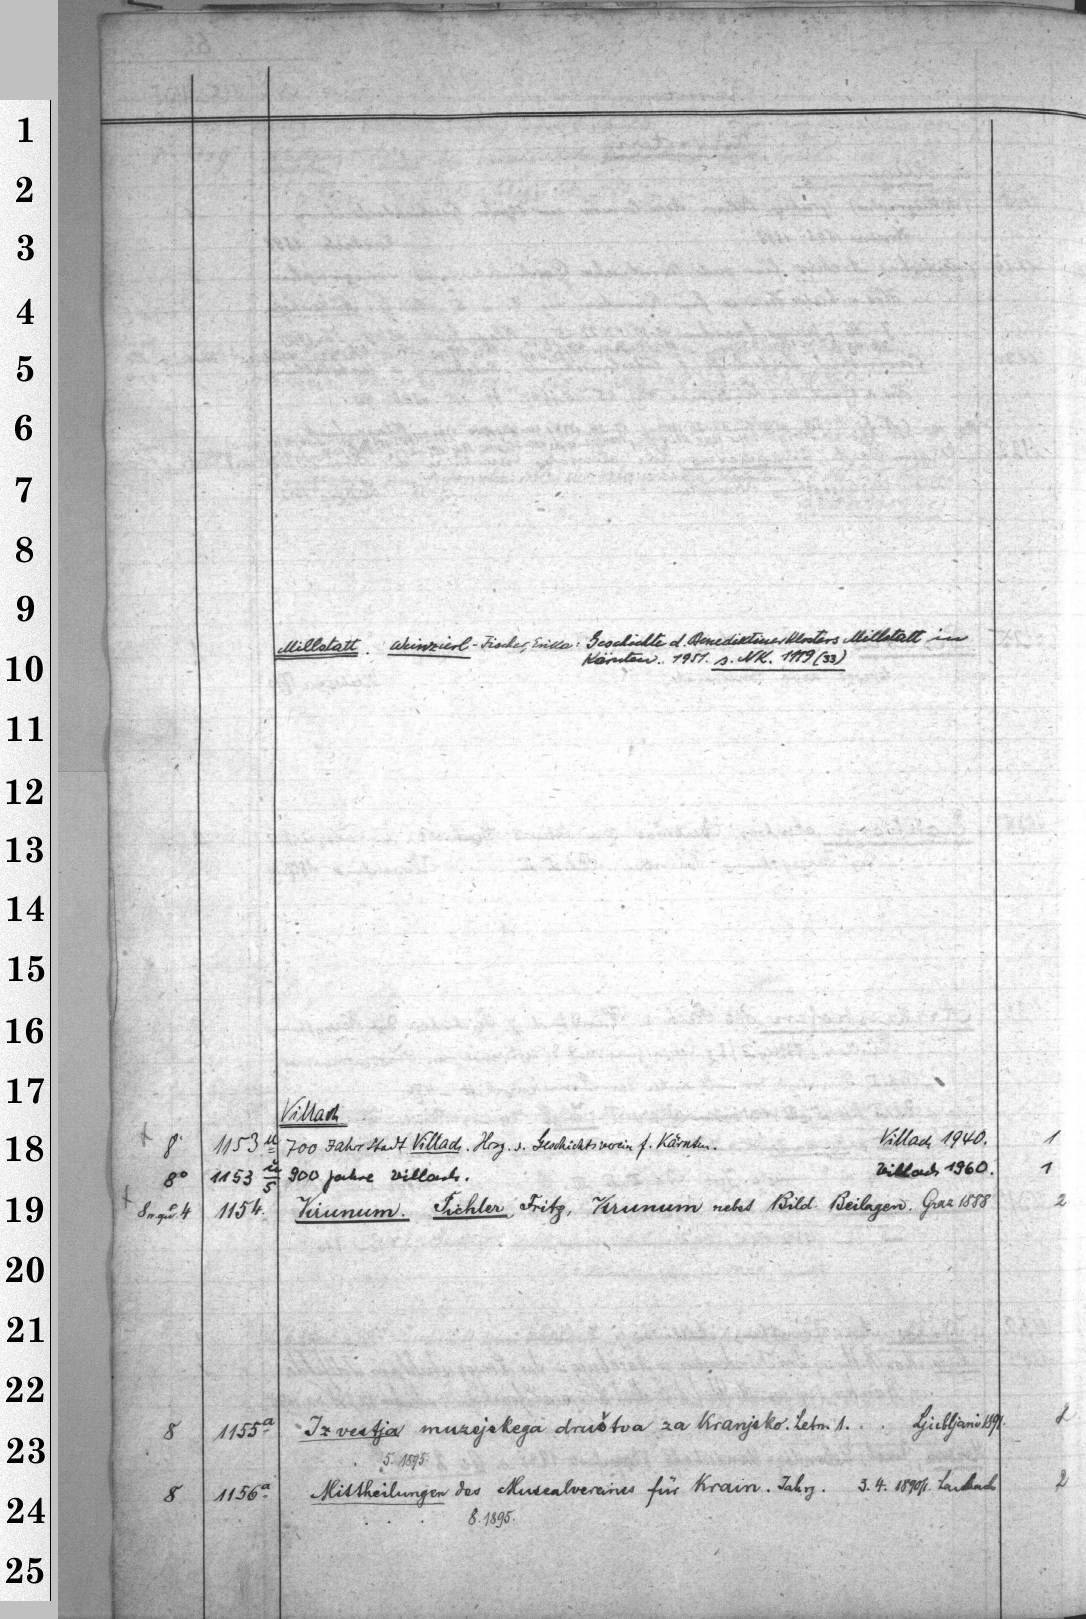 1
2
3
4
5
6
7
8
9
10
11
12
13
14
15
16
17
18
19
20
21
22
23
24
25
Millstatt. Weinzierl-Fischer, Erika: Geschichte d. Benediktinerklosters Millstatt in
Kärnten. 1951. s. NK. 1119 (33)
Villach
8° 1153 u 700 Jahr Stadt Villach. Hrzg. v. Geschichtsverein f. Kärnten. Villach 1940. 1
8° 1153 u/5 900 Jahre Villach. Villach 1960. 1
8 u. qu. 4 1154. Virunum. Pichler, Fritz, Virunum nebst Bild. Beilagen. Graz 1888 2
8 1155a Izvestja muzejskega društva za Kranjsko. Letn. 1. . . Ljubljani 1891. 2
5. 1895
8 1156a Mittheilungen des Musealvereines für Krain. Jahrg. 3. 4. 1890/1. Laibach 2
8. 1895.